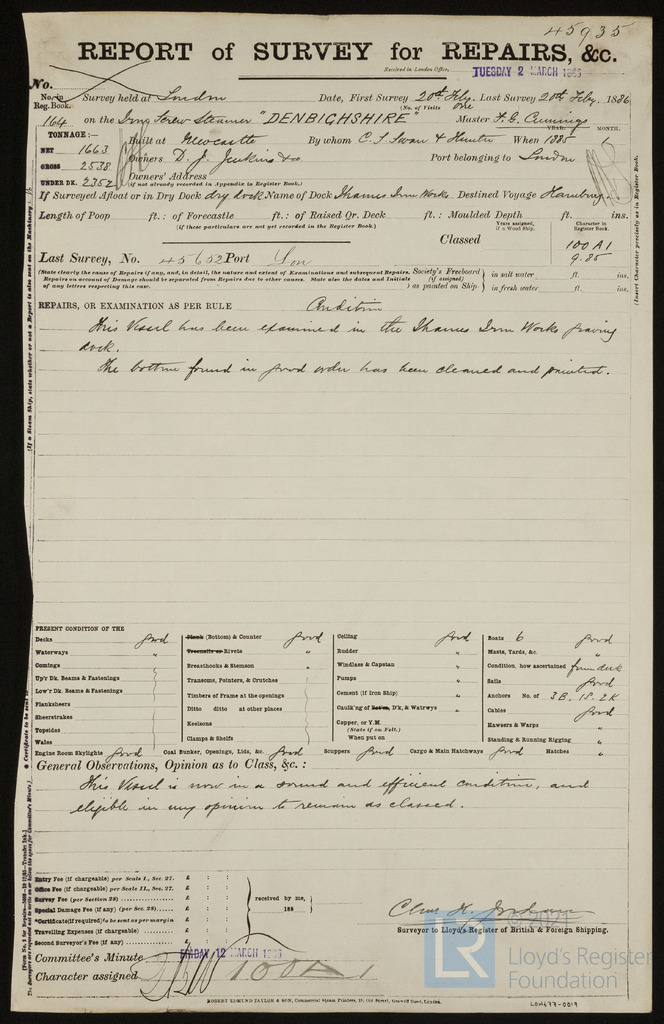 45935
REPORT of SURVEY for REPAIRS, &c.
Received in London Office, TUESDAY 2 MARCH 1886
No.
No. in Reg. Book. Survey held at London Date, First Survey 20th Feby. Last Survey 20th Feby. 1886
(No. of Visits one
164 on the Iron Screw Steamer "DENBIGHSHIRE" Master F. E. Cunnings
TONNAGE:— YEAR. MONTH.
NET 1663 Built at Newcastle By whom C. S. Swan & Hunter When 1885 1
GROSS 2538 Owners D. J. Jenkins & Co Port belonging to London
UNDER DK. 2352 Owners' Address
(if not already recorded in Appendix to Register Book.)
If Surveyed Afloat or in Dry Dock dry dock Name of Dock Thames Iron Works Destined Voyage Hamburg.
Length of Poop ft. : of Forecastle ft. : of Raised Qr. Deck ft. : Moulded Depth ft. ins.
(If these particulars are not yet recorded in the Register Book.) Years assigned, if a Wood Ship. Character in Register Book.
Classed 100 A1
9.85
Last Survey, No. 45652 Port Lon
(State clearly the cause of Repairs if any, and, in detail, the nature and extent of Examinations and subsequent Repairs. Society's Freeboard in salt water ft. ins.
Repairs on account of Damage should be separated from Repairs due to other causes. State also the dates and Initials (if assigned)
of any letters respecting this case. as painted on Ship in fresh water ft. ins.
REPAIRS, OR EXAMINATION AS PER RULE Condition
This Vessel has been examined in the Thames Iron Works graving
dock.
The bottom found in good order has been cleaned and painted.
PRESENT CONDITION OF THE
Decks good
Waterways "
Comings
Up'r Dk. Beams & Fastenings
Low'r Dk. Beams & Fastenings
Planksheers
Sheerstrakes
Topsides
Wales
Plank (Bottom) & Counter good
Treenails or Rivets "
Breasthooks & Stemson
Transoms, Pointers, & Crutches
Timbers of Frame at the openings
Ditto ditto at other places
Keelsons
Clamps & Shelfs
Ceiling good
Rudder "
Windlass & Capstan "
Pumps "
Cement (if Iron Ship) "
Caulk'ng of Bottom, D'k, & Watrwys "
Copper, or Y.M.
(State if on Felt.)
When put on
Boats 6 good
Masts, Yards, &c. "
Condition, how ascertained from deck
Sails good
Anchors No. of 3B. 1S. 2K
Cables good
Hawsers & Warps "
Standing & Running Rigging "
Engine Room Skylights good Coal Bunker, Openings, Lids, &c. good Scuppers good Cargo & Main Hatchways good Hatches "
General Observations, Opinion as to Class, &c. :
This Vessel is now in a sound and efficient condition, and
eligible in my opinion to remain as classed.
Entry Fee (if chargeable) per Scale I., Sec. 27. £ : :
Office Fee (if chargeable) per Scale II., Sec. 27. £ : :
Survey Fee (per Section 28) £ : :
Special Damage Fee (if any) (per Sec. 28) £ : :
Certificate (if required) to be sent as per margin
Travelling Expenses (if chargeable) £ : :
Second Surveyor's Fee (if any) £ : :
received by me,
188
Chas H. Jordan
Surveyor to Lloyd's Register of British & Foreign Shipping.
Committee's Minute FRIDAY 12 MARCH 1886
Character assigned 100A1
ROBERT EDMUND TAYLOR & SON, Commercial Steam Printers, 19, Old Street, Goswell Road, London.
© 2021
LR Lloyd's Register
Foundation
LON677-0019
(Insert Character precisely as in Register Book.